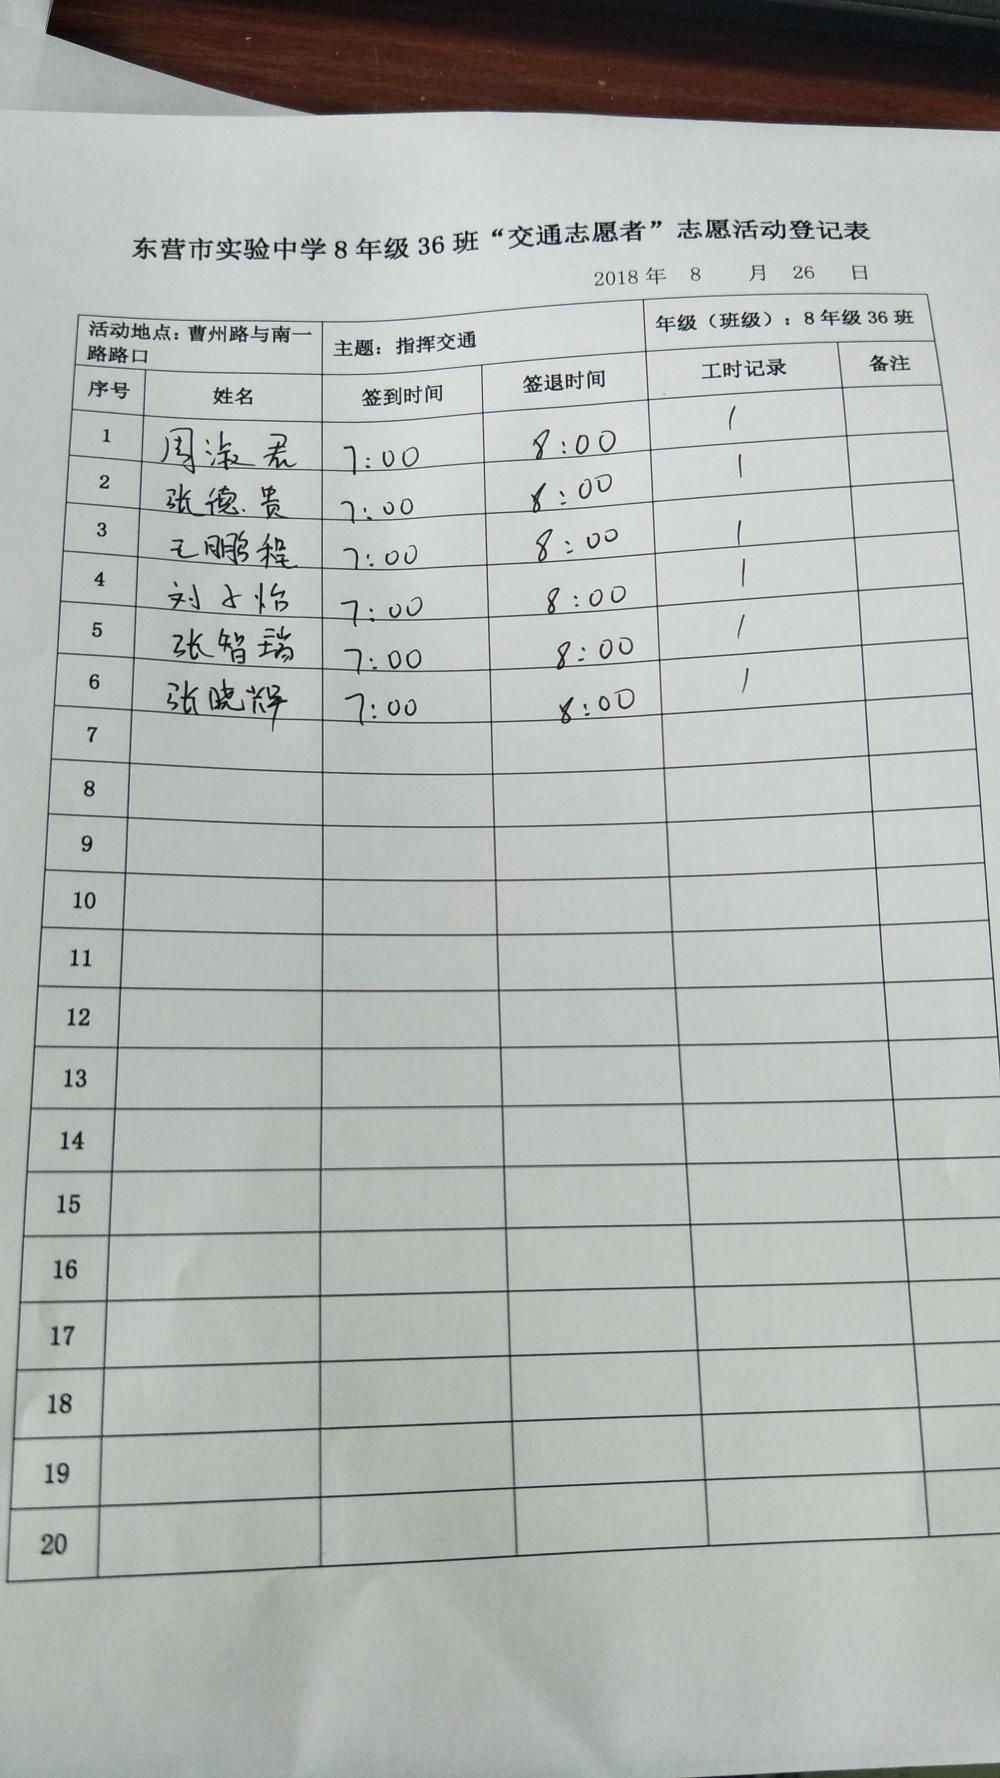 东营市实验中学8年级36班“交通志愿者”志愿活动登记表
2018年 8 月 26 日
活动地点：曹州路与南一路路口 主题：指挥交通 年级（班级）：8年级36班
序号 姓名 签到时间 签退时间 工时记录 备注
1 周淑君 7:00 8:00 1
2 张德贵 7:00 8:00 1
3 王鹏程 7:00 8:00 1
4 刘子怡 7:00 8:00 1
5 张智瑞 7:00 8:00 1
6 张晓辉 7:00 8:00 1
7
8
9
10
11
12
13
14
15
16
17
18
19
20